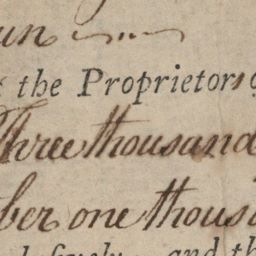 the Proprietors
Three thousand
ber one thous
and th